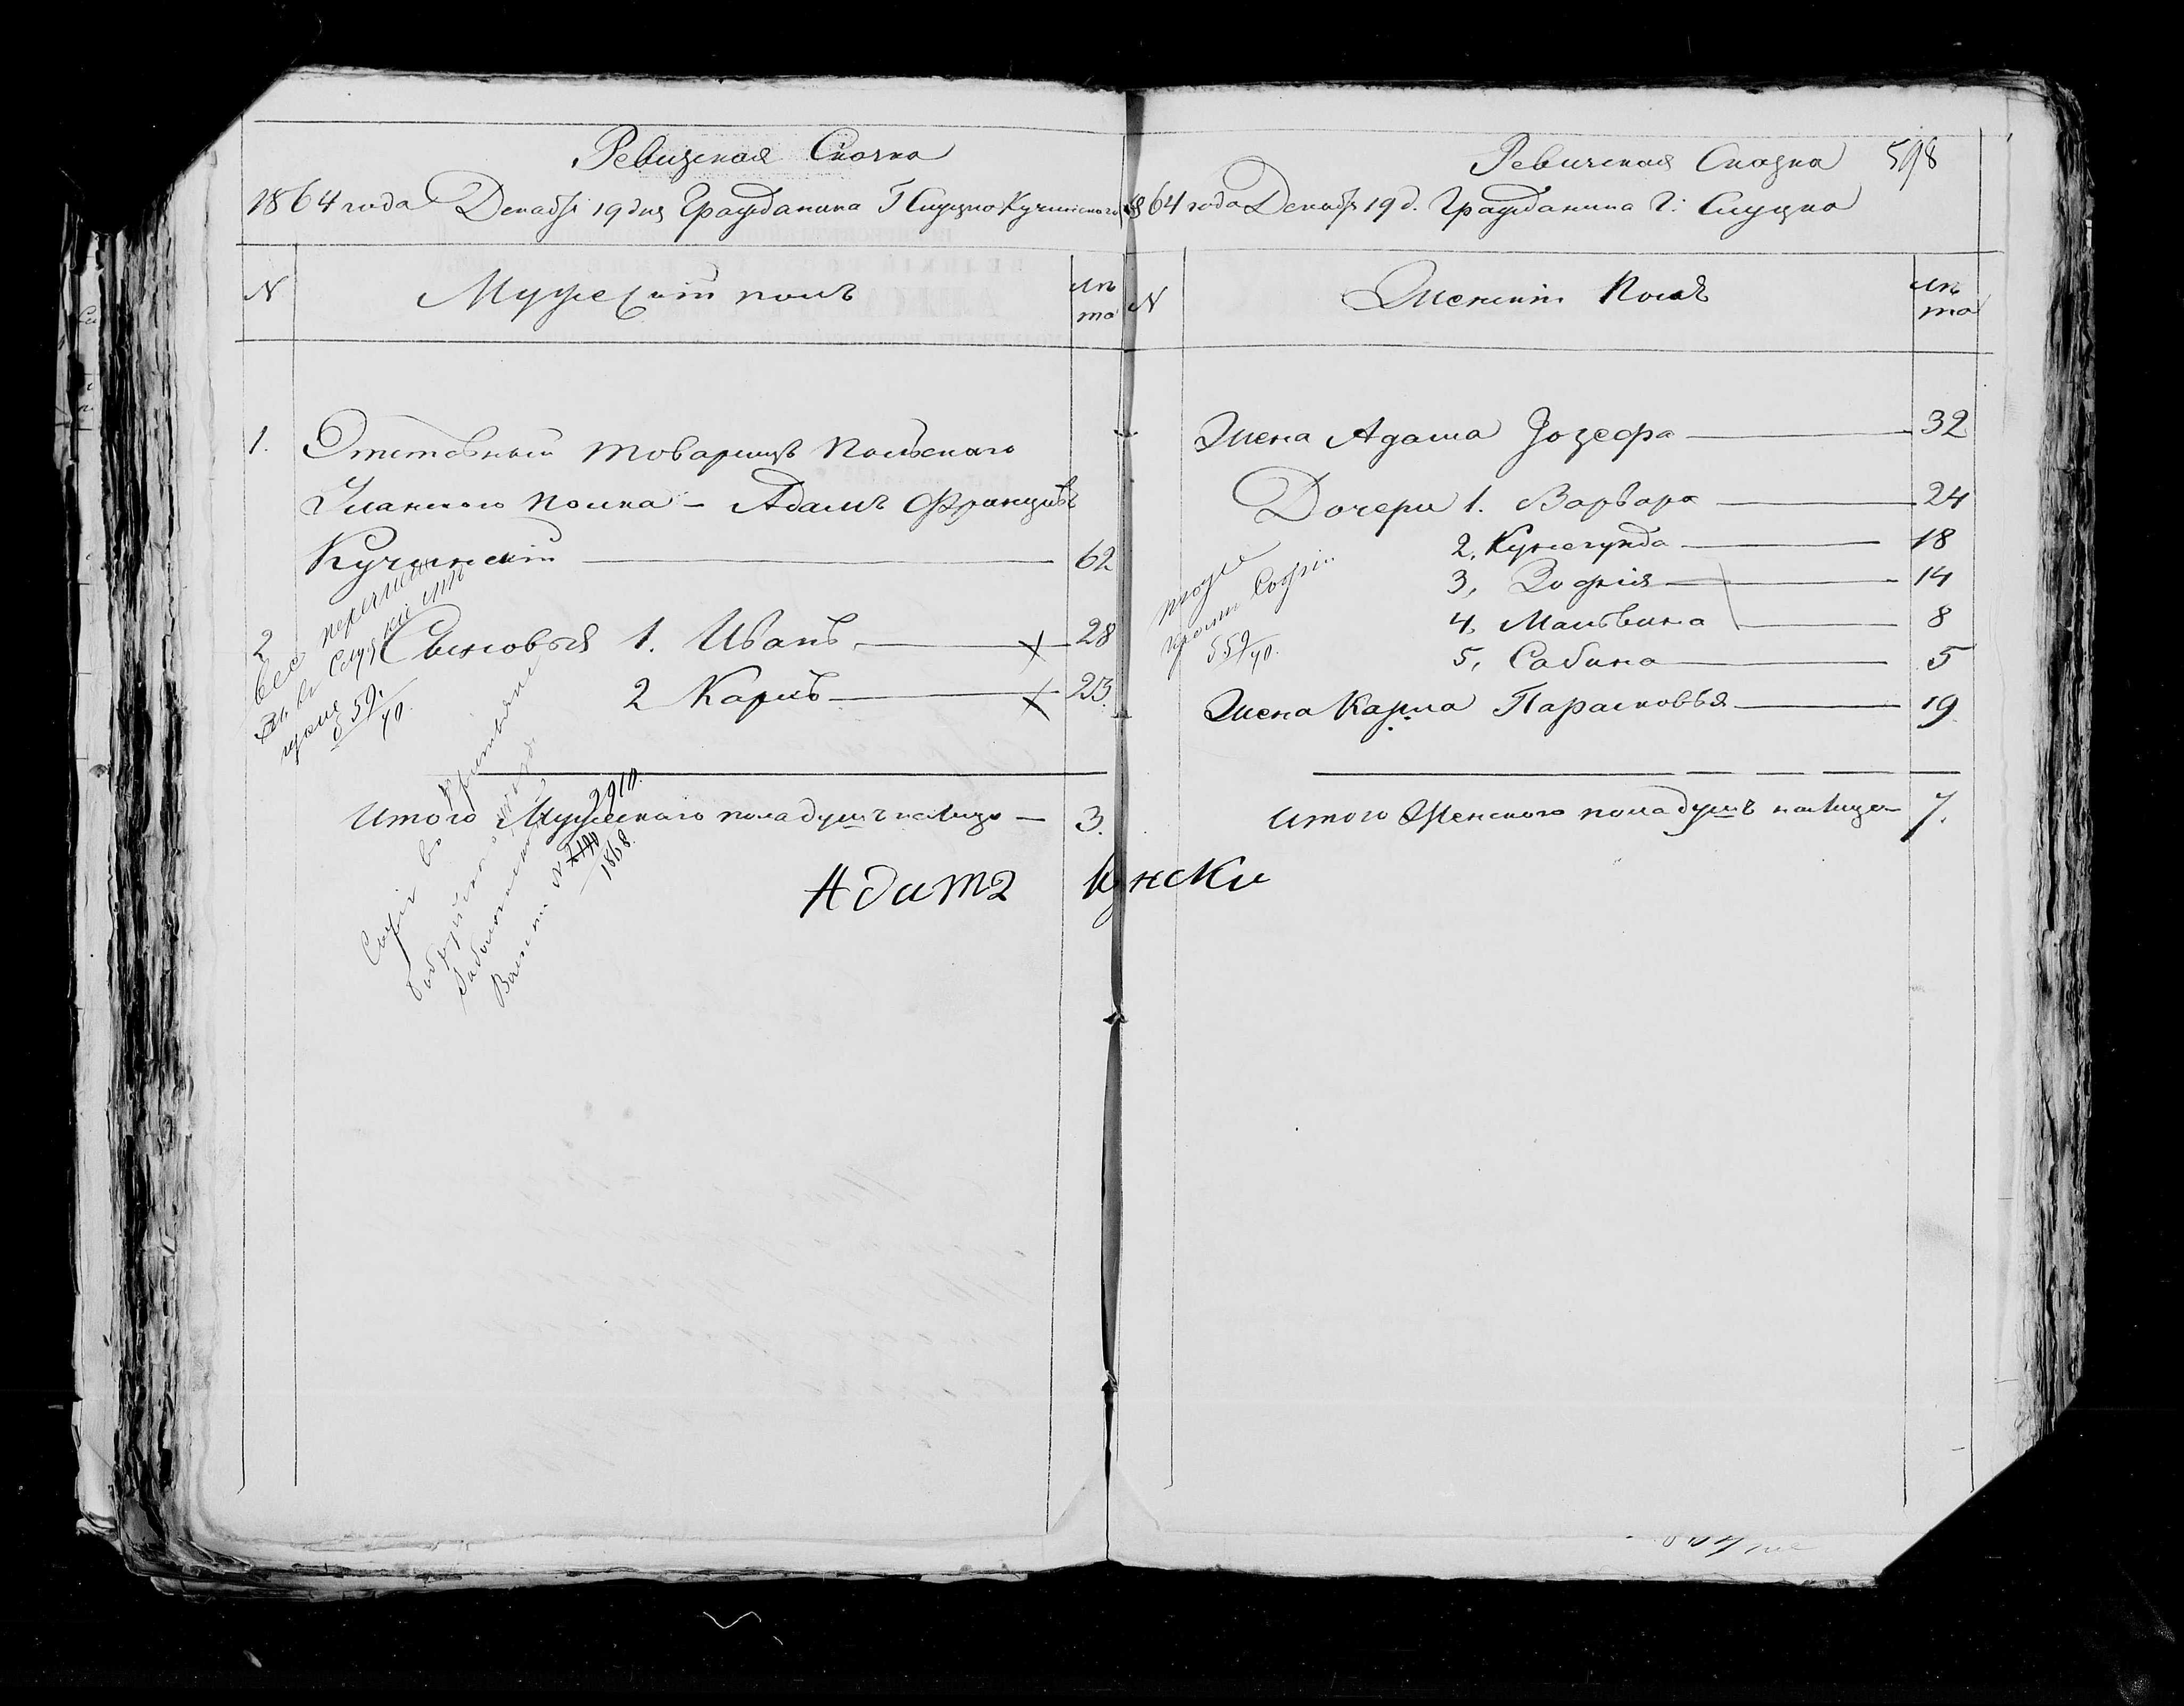 Ревизская Сказка
1864 года Декабря 19 дня Гражданина Г Слуцка Кучинского
N
Мужескій полъ
Лѣ
та
1.
Отставный товарищъ Польскаго
Уланского полка – Адамъ Францовъ
Кучинскій
62
2
Сыновья 1. Иванъ
28
2 Карлъ
23
все перечислен
въ Слуцкіе
мѣщане
559/40.
Итого Мужескаго пола душъ на лицо –
3.
Софія
2910.
N 2140
1868.
Адамъ
Ревизская Сказка
598
1864 года Декабря 19 д. Гражданина Г: Слуцка
N
Женскій Полъ
Лѣ
та
Жена Адама Іозефа
32
Дочери 1. Варвара
24
2, Кунегунда
18
3, Зофія
14
4, Мальвина
8
5, Сабина
5
Жена Карла Парасковья
19
тоже
кромѣ Софіи
559/40.
Итого Женского пола душъ на лицо
7.